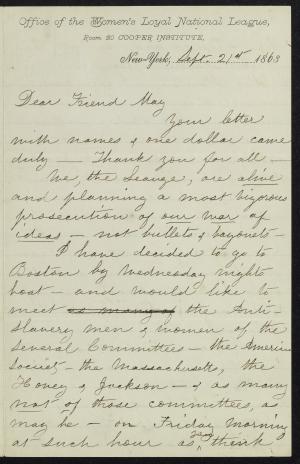 Office of the Women's Loyal National League,
Room 20 COOPER INSTITUTE,
New-York, Sept. 21st 1863
Dear Friend May
Your letter
with names & one dollar came
duly — Thank you for all —
We, the League, are alive
and planning a most vigorous
prosecution of our war of
ideas — not bullets & bayonets —
I have decided to go to
Boston by Wednesday nights
boat — and would like to
meet as many of the Anti-
slavery men & women of the
several Committees — the American
Society — the Massachusetts, the
Hovey & Jackson — & as many
not of those committees, as
may be — on Friday morning
at such hour as you think